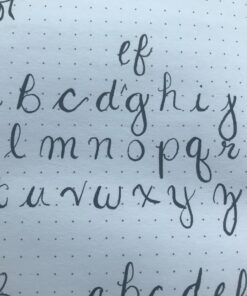 ef
b c d g h i j
l m n o p q r
u v w x y z
a b c d e f